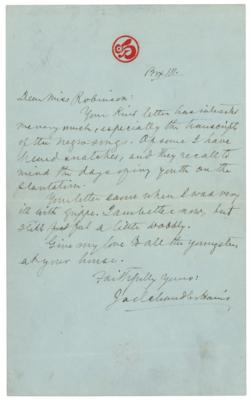 Box 111.
Dear Miss Robinson:
Your kind letter has interested
me very much, especially the transcript
of the negro songs. Of some I have
heard snatches, and they recall to
mind the days of my youth on the
plantation.
Your letter came when I was very
ill with grippe. I am better now, but
still feel a little wobbly.
Give my love to all the youngsters
at your house.
Faithfully yours:
Joel Chandler Harris